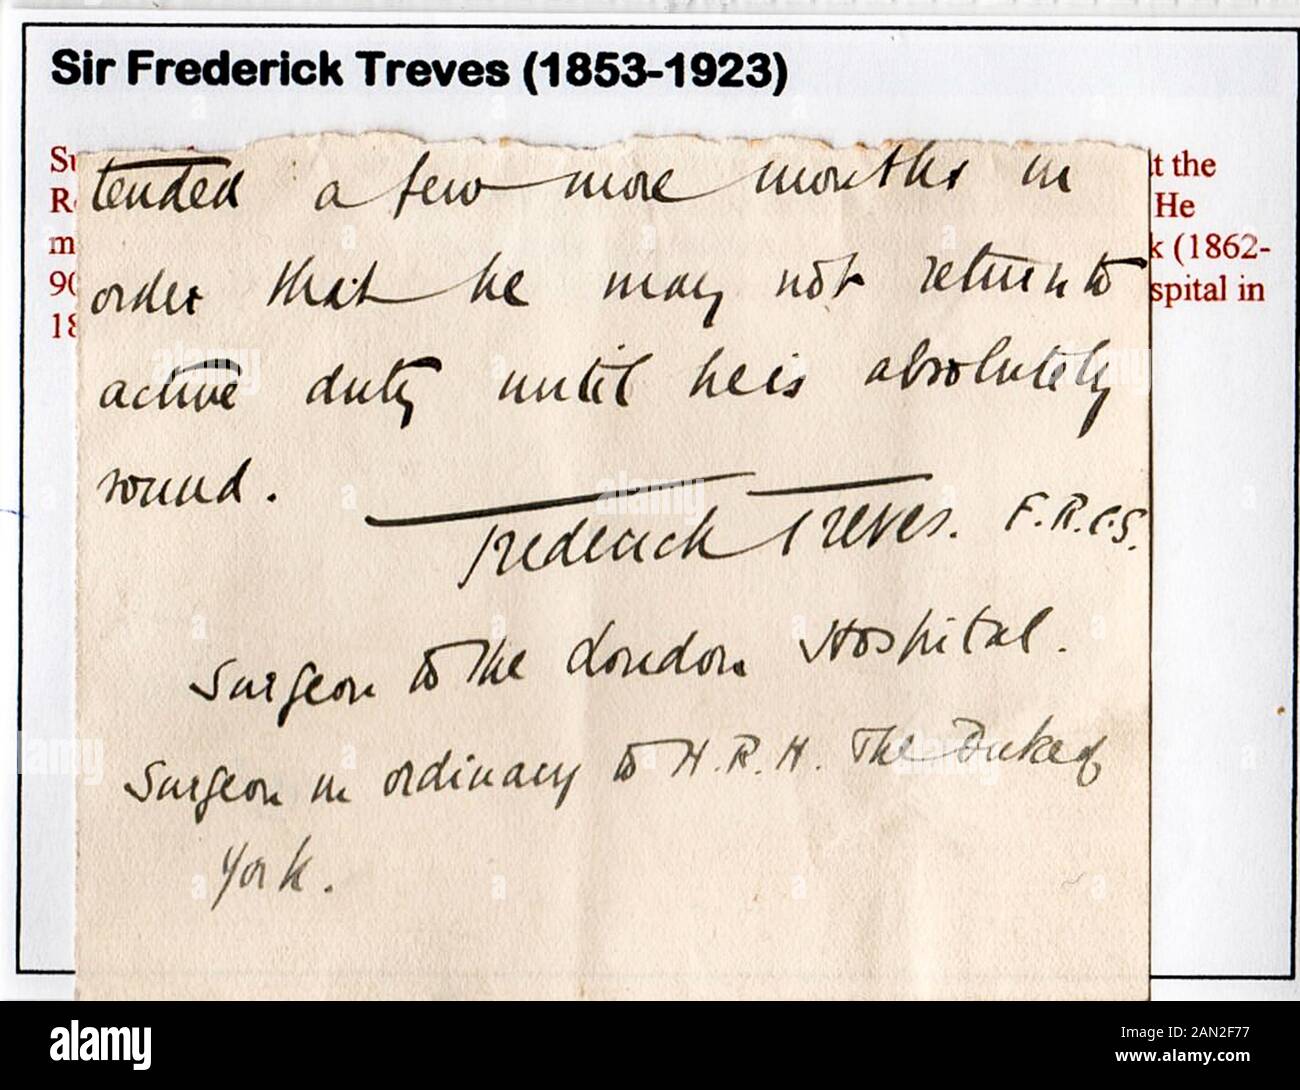 Sir Frederick Treves (1853-1923)
tended a few more months in
order that he may not return to
active duty until he is absolutely
sound.
Frederick Treves. F.R.C.S.
Surgeon to the London Hospital.
Surgeon in ordinary to H.R.H. The Duke of
York.
the
He
(1862-
90
spital in
18
alamy
Image ID: 2AN2F77
www.alamy.com